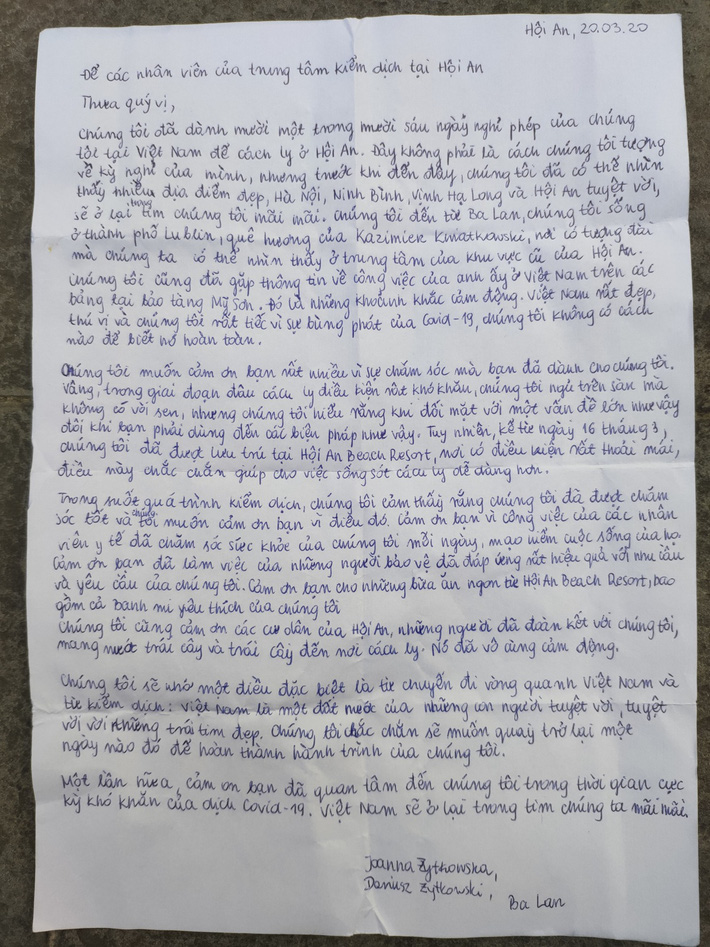 Hội An, 20.03.20
Để các nhân viên của trung tâm kiểm dịch tại Hội An
Thưa quý vị,
Chúng tôi đã dành mười một trong mười sáu ngày nghỉ phép của chúng
tôi tại Việt Nam để cách ly ở Hội An. Đây không phải là cách chúng tôi tượng
về kỳ nghỉ của mình, nhưng trước khi đến đây, chúng tôi đã có thể nhìn
thấy nhiều địa điểm đẹp, Hà Nội, Ninh Bình, Vịnh Hạ Long và Hội An tuyệt vời,
sẽ ở lại trong tim chúng tôi mãi mãi. Chúng tôi đến từ Ba Lan, chúng tôi sống
ở thành phố Lublin, quê hương của Kazimier Kwiatkowski, nơi có tượng đài
mà chúng ta có thể nhìn thấy ở trung tâm của khu vực cũ của Hội An.
Chúng tôi cũng đã gặp thông tin về công việc của anh ấy ở Việt Nam trên các
bảng tại bảo tàng Mỹ Sơn. Đó là những khoảnh khắc cảm động. Việt Nam rất đẹp,
thú vị và chúng tôi rất tiếc vì sự bùng phát của Covid-19, chúng tôi không có cách
nào để biết nó hoàn toàn.
Chúng tôi muốn cảm ơn bạn rất nhiều vì sự chăm sóc mà bạn đã dành cho chúng tôi.
Vâng, trong giai đoạn đầu cách ly điều kiện rất khó khăn, chúng tôi ngủ trên sàn mà
không có vòi sen, nhưng chúng tôi hiểu rằng khi đối mặt với một vấn đề lớn như vậy
đôi khi bạn phải dùng đến các biện pháp như vậy. Tuy nhiên, kể từ ngày 16 tháng 3,
chúng tôi đã được lưu trú tại Hội An Beach Resort, nơi có điều kiện rất thoải mái,
điều này chắc chắn giúp cho việc sống sót cách ly dễ dàng hơn.
Trong suốt quá trình kiểm dịch, chúng tôi cảm thấy rằng chúng tôi đã được chăm
sóc tốt và chúng tôi muốn cảm ơn bạn vì điều đó. Cảm ơn bạn vì công việc của các nhân
viên y tế đã chăm sóc sức khỏe của chúng tôi mỗi ngày, mạo hiểm cuộc sống của họ
Cảm ơn bạn đã làm việc của những người bảo vệ đã đáp ứng rất hiệu quả với nhu cầu
và yêu cầu của chúng tôi. Cảm ơn bạn cho những bữa ăn ngon từ Hội An Beach Resort, bao
gồm cả bánh mì yêu thích của chúng tôi
Chúng tôi cũng cảm ơn các cư dân của Hội An, những người đã đoàn kết với chúng tôi,
mang nước trái cây và trái cây đến nơi cách ly. Nó đã vô cùng cảm động.
Chúng tôi sẽ nhớ một điều đặc biệt là từ chuyến đi vòng quanh Việt Nam và
từ kiểm dịch: Việt Nam là một đất nước của những con người tuyệt vời, tuyệt
vời với những trái tim đẹp. Chúng tôi chắc chắn sẽ muốn quay trở lại một
ngày nào đó để hoàn thành hành trình của chúng tôi.
Một lần nữa, cảm ơn bạn đã quan tâm đến chúng tôi trong thời gian cực
kỳ khó khăn của dịch Covid-19. Việt Nam sẽ ở lại trong tim chúng ta mãi mãi.
Joanna Żytkowska,
Dariusz Żytkowski,
Ba Lan